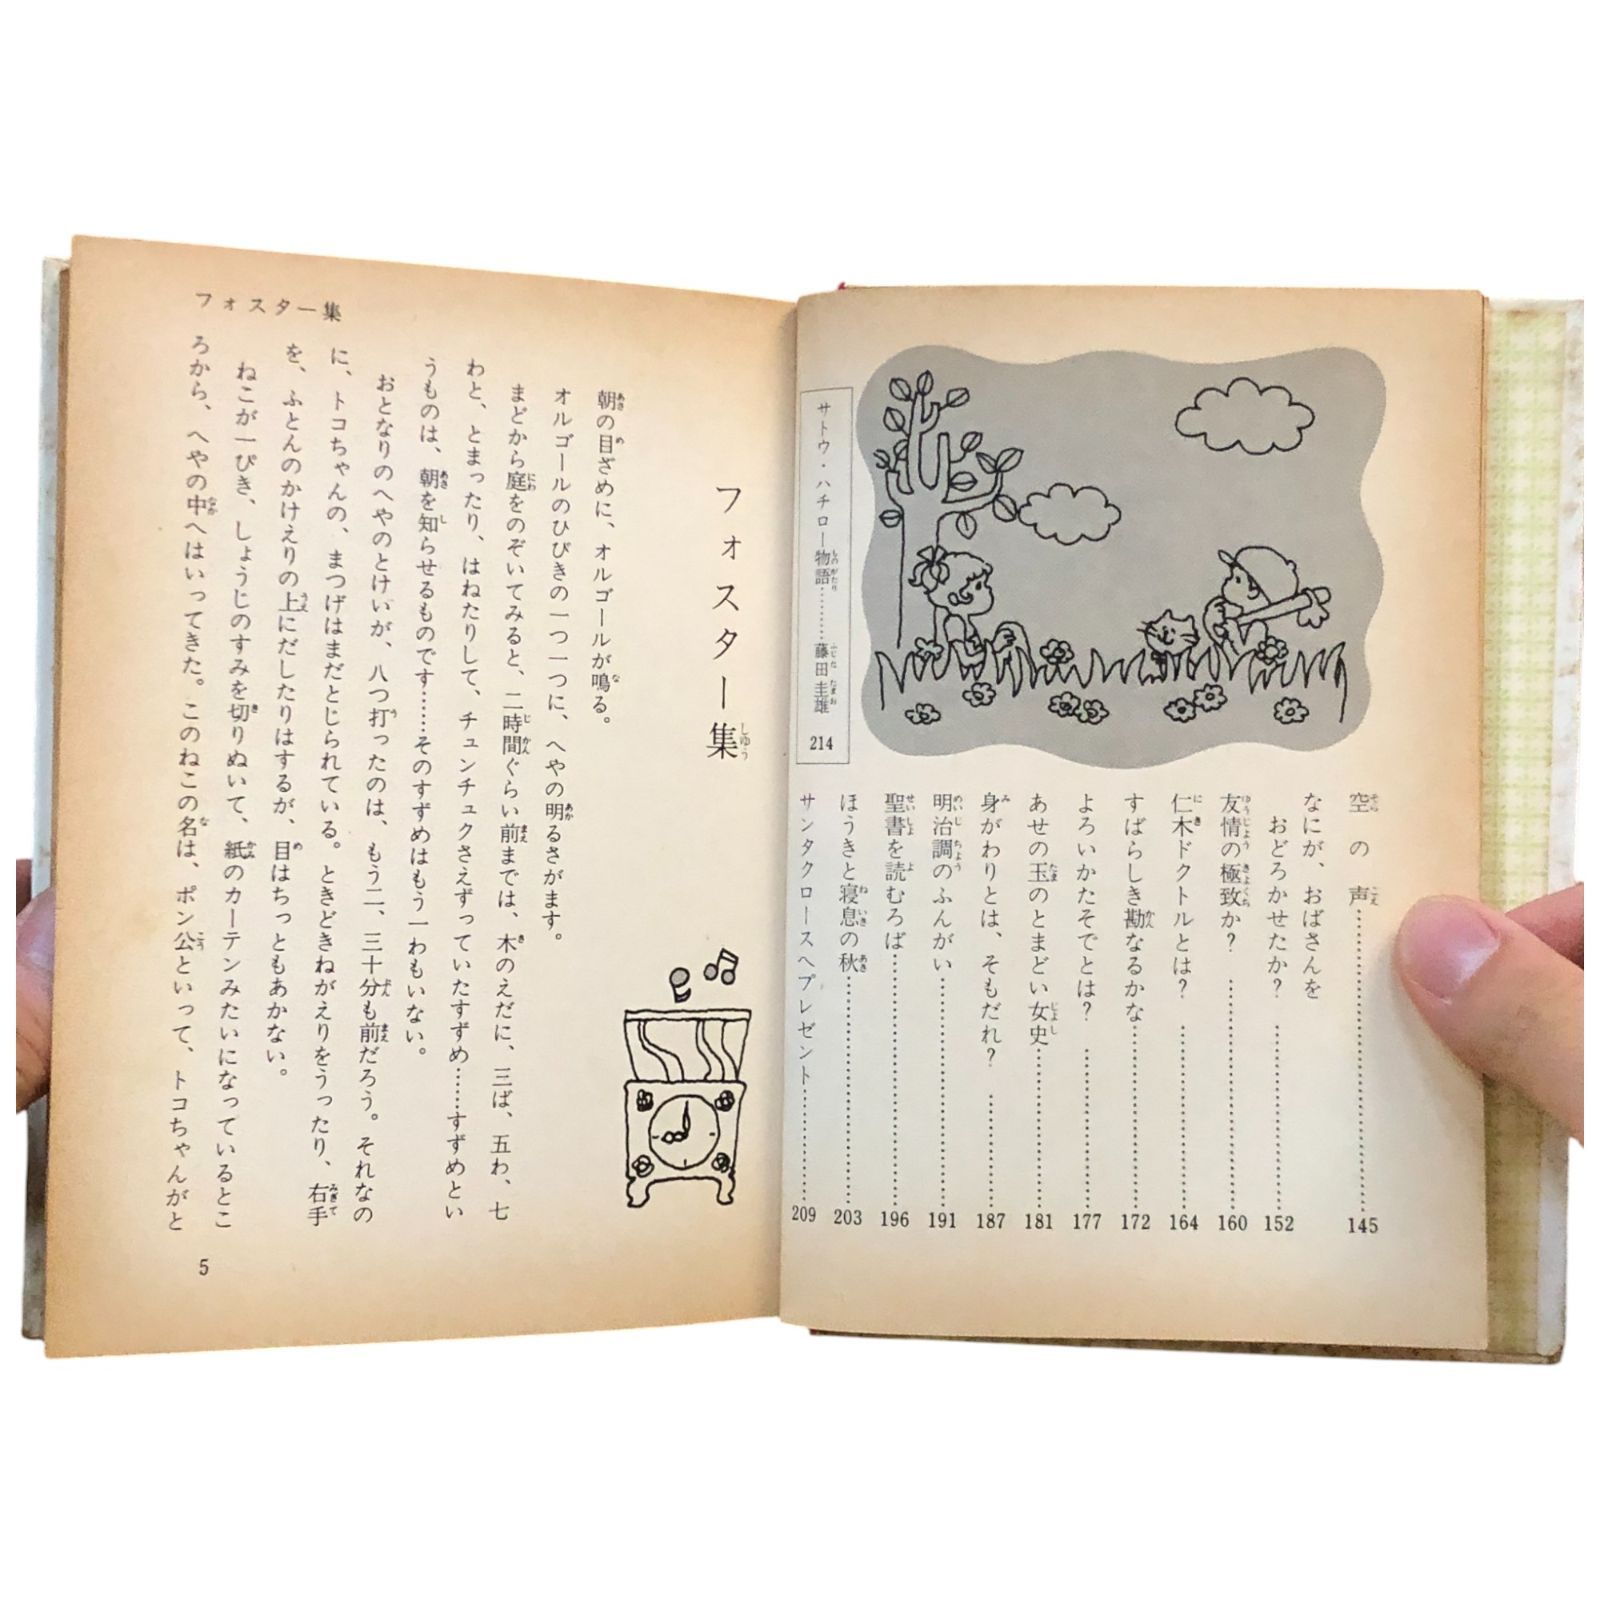 空の声……145
なにが、おばさんを
おどろかせたか？……152
友情の極致か？……160
仁木ドクトルとは？……164
すばらしき勘なるかな……172
よろいかたそでとは？……177
あせの玉のとまどい女史……181
身がわりとは、そもだれ？……187
明治調のふんがい……191
聖書を読むろば……196
ほうきと寝息の秋……203
サンタクロースへプレゼント……209
サトウ・ハチロー物語……藤田圭雄 214
フォスター集
朝の目ざめに、オルゴールが鳴る。
オルゴールのひびきの一つ一つに、へやの明るさがます。
まどから庭をのぞいてみると、二時間ぐらい前までは、木のえだに、三ば、五わ、七
わと、とまったり、はねたりして、チュンチュクさえずっていたすずめ……すずめとい
うものは、朝を知らせるものです……そのすずめはもう一わもいない。
おとなりのへやのとけいが、八つ打ったのは、もう二、三十分も前だろう。それなの
に、トコちゃんの、まつげはまだとじられている。ときどきねがえりをうったり、右手
を、ふとんのかけえりの上にだしたりはするが、目はちっともあかない。
ねこが一ぴき、しょうじのすみを切りぬいて、紙のカーテンみたいになっているとこ
ろから、へやの中へはいってきた。このねこの名は、ポン公といって、トコちゃんがと
フォスター集
5